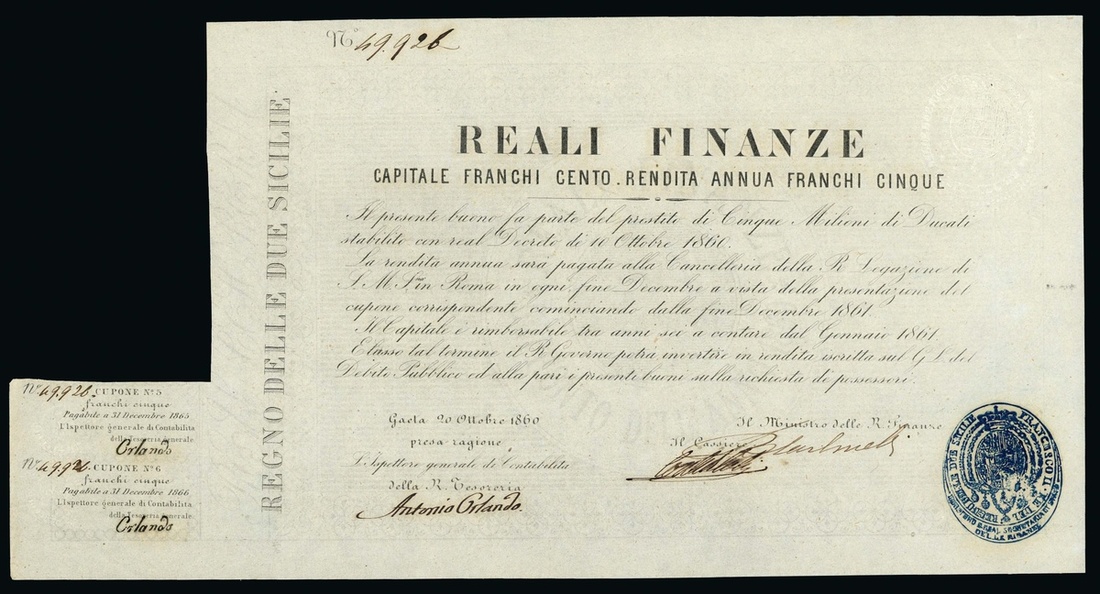 Nº 49.926
REGNO DELLE DUE SICILIE
REALI FINANZE
CAPITALE FRANCHI CENTO. RENDITA ANNUA FRANCHI CINQUE
Il presente buono fa parte del prestito di Cinque Milioni di Ducati
stabilito con real Decreto de 10 Ottobre 1860.
La rendita annua sarà pagata alla Cancelleria della R. Legazione di
S. M. S. in Roma in ogni fine Decembre a vista della presentazione del
cupone corrispondente cominciando dalla fine Decembre 1861.
Il Capitale è rimborsabile tra anni sei a contare dal Gennaio 1861.
Elasso tal termine il R. Governo potrà invertire in rendita iscritta sul G. L. del
Debito Pubblico ed alla pari i presenti buoni sulla richiesta di possessori.
Gaeta 20 Ottobre 1860
presa ragione
L'Ispettore generale di Contabilità
della R. Tesoreria
Antonio Orlando.
Il Ministro delle R. Finanze
Il Cassiere
Nº 49.926. CUPONE Nº 5
franchi cinque
Pagabile a 31 Decembre 1865
L'Ispettore generale di Contabilità
della Tesoreria Generale
Orlando
Nº 49.926 CUPONE Nº 6
franchi cinque
Pagabile a 31 Decembre 1866
L'Ispettore generale di Contabilità
della Tesoreria Generale
Orlando
FRANCESCO II. RE DEL REGNO DELLE DUE SICILIE
DELLE FINANZE